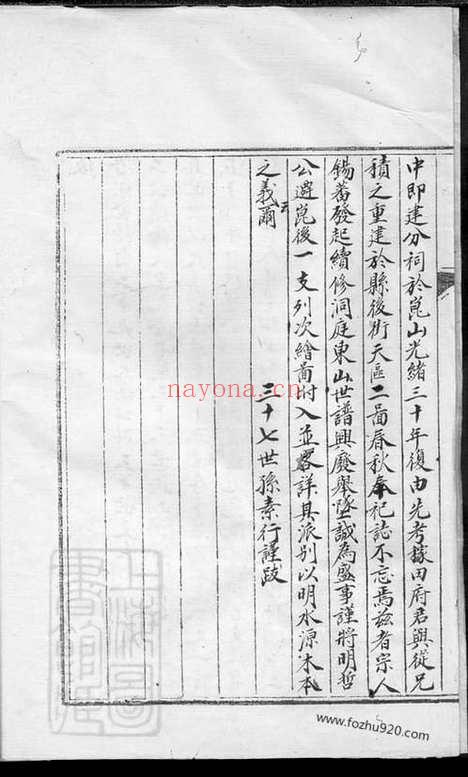 中即建分祠於崑山光緒三十年復由先考據田府君與從兄
積之重建於縣後街天區二啚春秋奉祀誌不忘焉茲者宗人
錫蕃發起續修洞庭東山世譜興廢舉墜誠為盛事謹將明哲
公遷崑後一支列次繪啚附入並畧詳其派別以明水源木本
之義云爾
三十七世孫素行謹跋
上海圖書館藏
nayona.cn
www.fozhu920.com